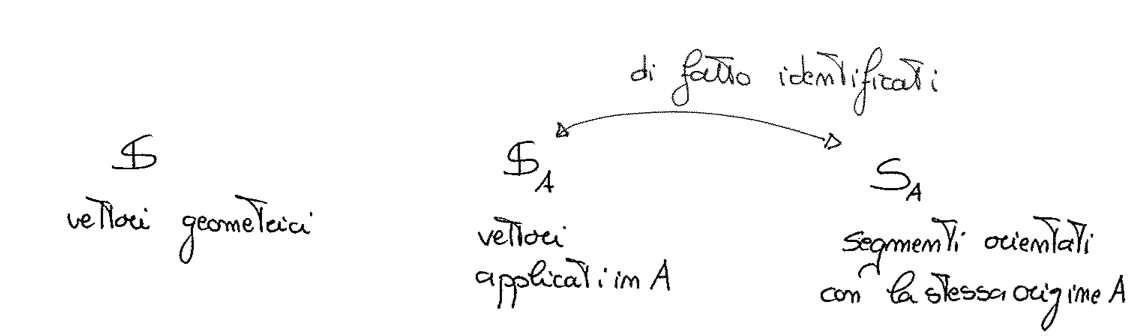 di fatto identificati
𝕊 𝕊_A S_A
vettori geometrici
vettori
applicati in A
segmenti orientati
con la stessa origine A